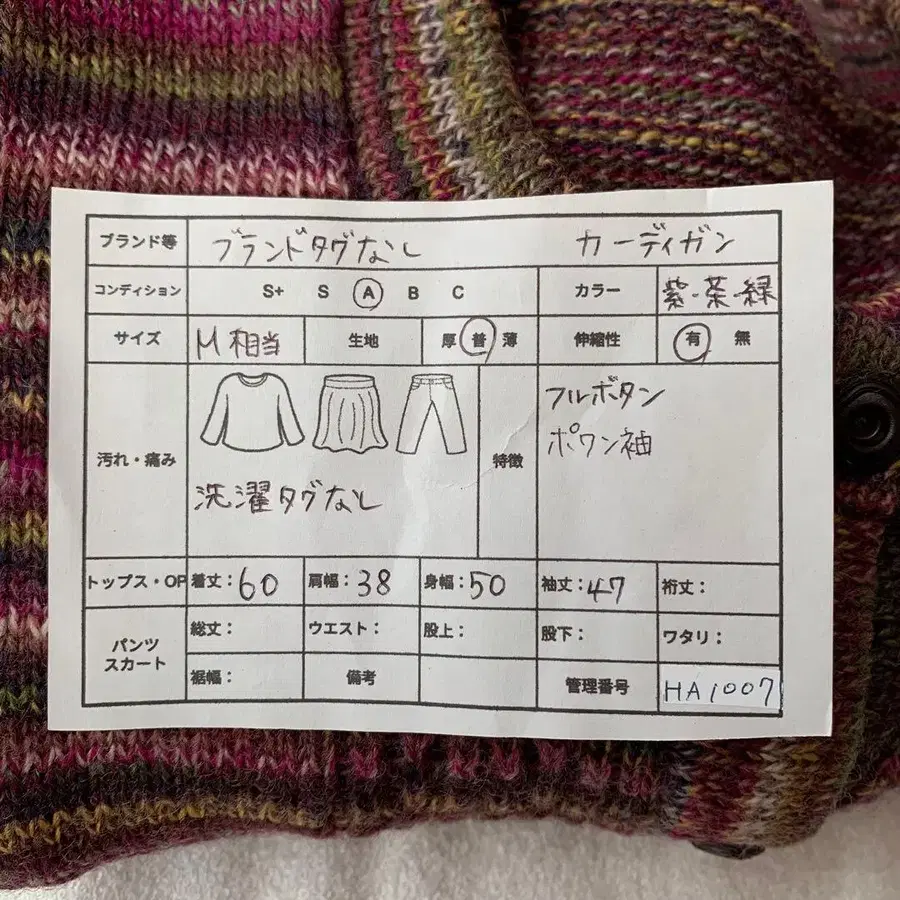 ブランド等 ブランドタグなし カーディガン
コンディション S+ S A B C カラー 紫・茶・緑
サイズ M相当 生地 厚 普 薄 伸縮性 有 無
汚れ・痛み 洗濯タグなし 特徴 フルボタン
ポワン袖
トップス・OP 着丈：60 肩幅：38 身幅：50 袖丈：47 裄丈：
パンツ スカート 総丈： ウエスト： 股上： 股下： ワタリ：
裾幅： 備考 管理番号 HA1007